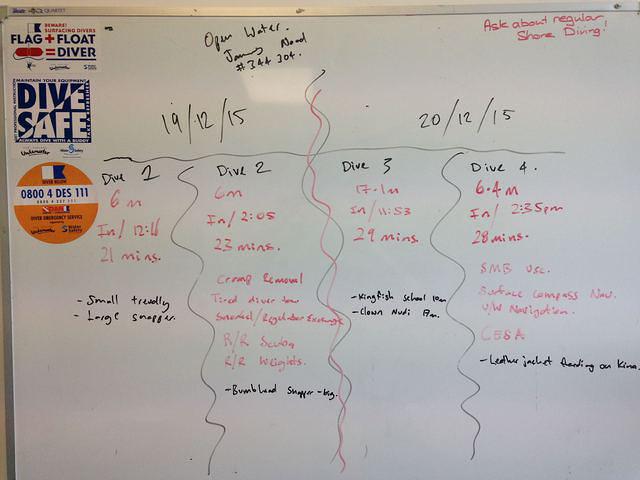 BEWARE!
SURFACING DIVERS
FLAG + FLOAT
= DIVER
MAINTAIN YOUR EQUIPMENT
DIVE
SAFE
ALWAYS DIVE WITH A BUDDY
DIVER BELOW
0800 4 DES 111
DIVER EMERGENCY SERVICE
Open Water.
James Nood
#344304.
Ask about regular
Shore Diving!
19/12/15
20/12/15
Dive 1
6m
In/ 12:16
21 mins.
- Small trevally
- Large snapper.
Dive 2
6m
In/ 2:05
23 mins.
Cramp Removal
Tired diver tow
Snorkel/Regulator Exchange
R/R Scuba
R/R Weights.
- Bumblehead Snapper - big.
Dive 3
17.1m
In/ 11:53
29 mins.
- Kingfish school 10m
- Clown Nudi 17m.
Dive 4.
6.4m
In/ 2:35pm
28 mins.
SMB use.
Surface Compass Nav.
U/W Navigation.
CESA
- Leather jacket feeding on Kina.